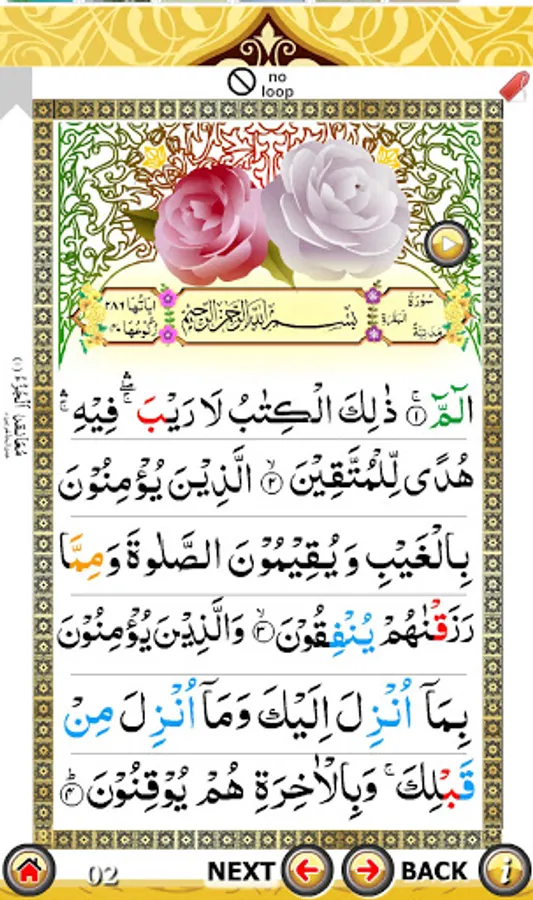 no
loop
سُوْرَةُ الْبَقَرَة مَدَنِيَّةٌ
بِسْمِ اللهِ الرَّحْمٰنِ الرَّحِيْمِ
اٰيَاتُهَا ٢٨٦ رُكُوْعُهَا ٤٠
الٓمّٓ ۚ﴿١﴾ ذٰلِكَ الْكِتٰبُ لَا رَيْبَ ۛۖ فِيْهِ ۛۚ
هُدًى لِّلْمُتَّقِيْنَ ۙ﴿٢﴾ الَّذِيْنَ يُؤْمِنُوْنَ
بِالْغَيْبِ وَيُقِيْمُوْنَ الصَّلٰوةَ وَمِمَّا
رَزَقْنٰهُمْ يُنْفِقُوْنَ ۙ﴿٣﴾ وَالَّذِيْنَ يُؤْمِنُوْنَ
بِمَآ اُنْزِلَ اِلَيْكَ وَمَآ اُنْزِلَ مِنْ
قَبْلِكَ ۚ وَبِالْاٰخِرَةِ هُمْ يُوْقِنُوْنَ ؕ﴿٤﴾
02 NEXT BACK i